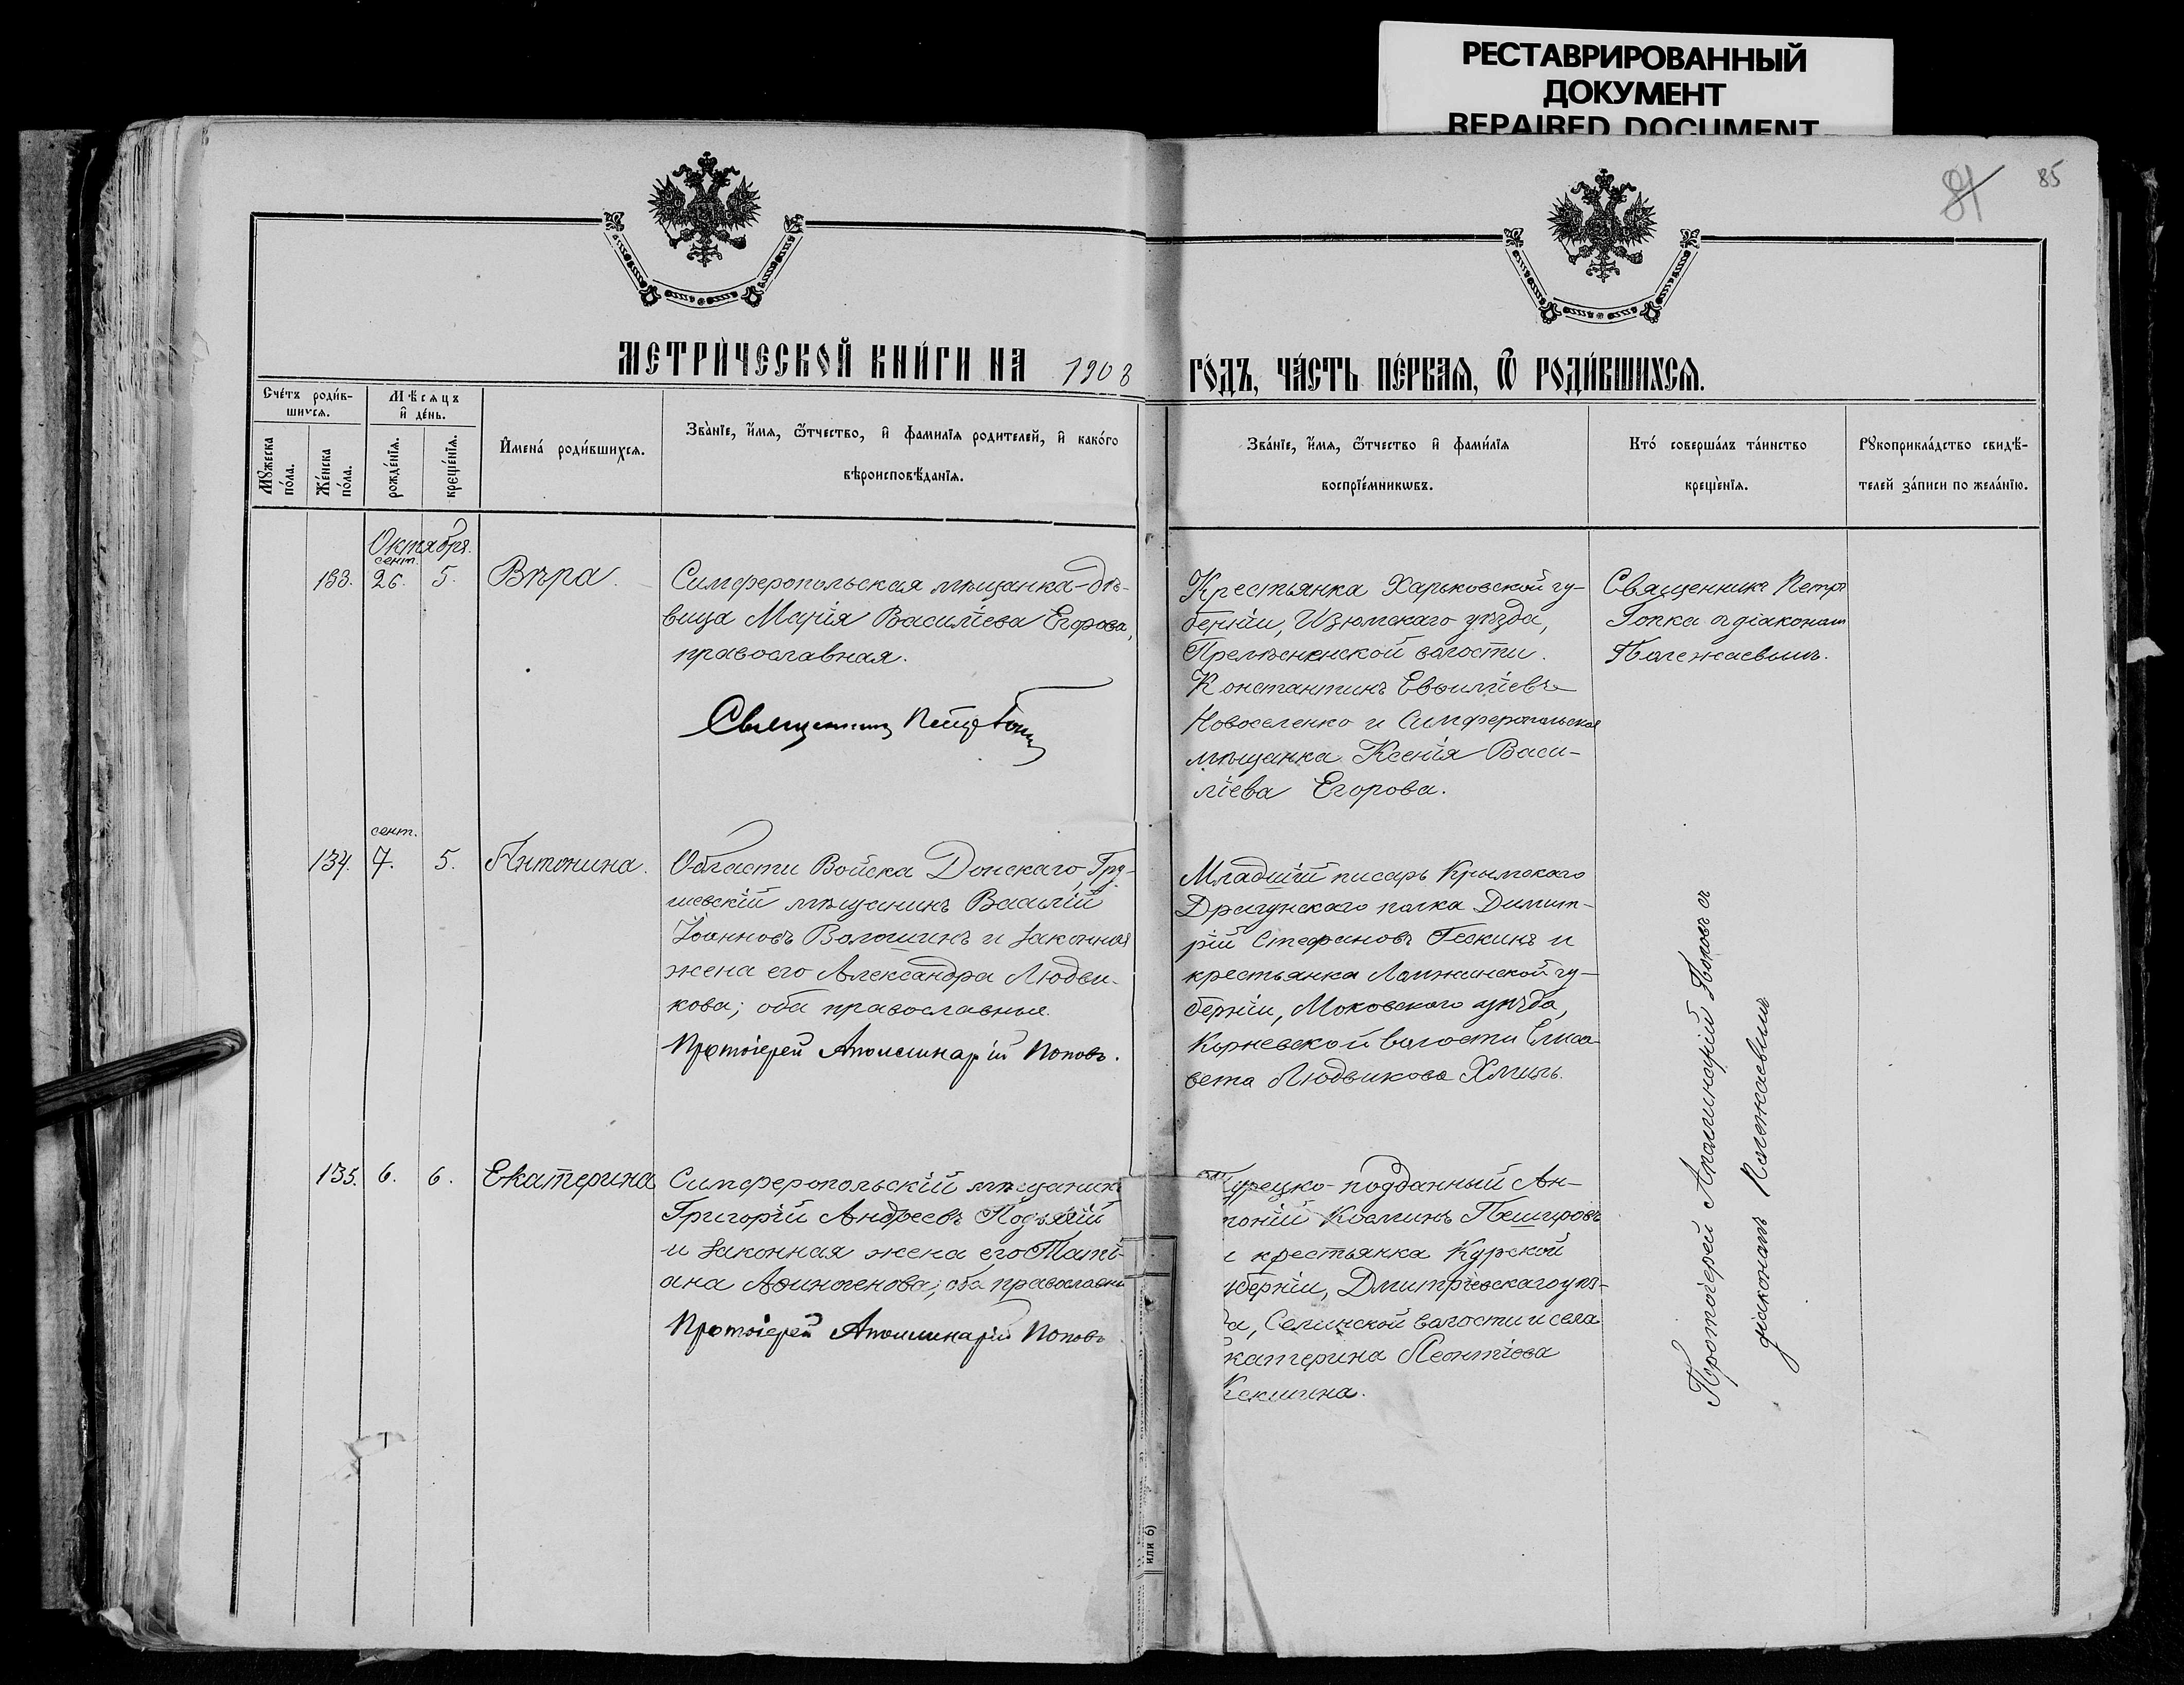 РЕСТАВРИРОВАННЫЙ
ДОКУМЕНТ
REPAIRED DOCUMENT
81
85
МЕТРИ́ЧЕСКОЙ КНИ́ГИ НА 1908
ГО́ДЪ, ЧА́СТЬ ПЕ́РВАѦ, Ѿ РОДИ́ВШИХСѦ.
Сче́тъ роди́в-
шихсѧ.
Мѣ́сѧцъ
и҆ де́нь.
Мꙋжеска по́ла.
Же́нска по́ла.
рожде́нїѧ.
креще́нїѧ.
И҆мена̀ роди́вшихсѧ.
Зва́нїе, и҆́мѧ, ѻ҆́тчество, и҆ фамилїѧ родителей, и҆ како́го
вѣроисповѣ́данїѧ.
Зва́нїе, и҆́мѧ, ѻ҆́тчество и҆ фами́лїѧ
воспрїе́мникѡвъ.
Кто̀ соверша́лъ та́инство
креще́нїѧ.
Рꙋкоприкла́дство свидѣ́-
телей за́писи по жела́нїю.
Октября.
сент.
133. 26. 5. Вѣра.
Симферопольская мѣщанка-дѣ-
вица Марія Василіева Егорова,
православная.
Священникъ Петръ Гопка
Крестьянка Харьковской гу-
берніи, Изюмскаго уѣзда,
волости.
Константинъ
Новоселенко и Симферопольская
мѣщанка Ксенія Васи-
ліева Егорова.
Священникъ Петръ
Гопка съ діакономъ
Полежаевымъ.
сент.
134. 7. 5. Антонина.
Области Войска Донскаго, Гру-
шевскій мѣщанинъ Василій
Іоанновъ Волошинъ и законная
жена его Александра Людви-
кова; оба православные.
Протоіерей Аполлинарій Поповъ.
Младшій писарь Крымскаго
Драгунскаго полка Димит-
рій Стефановъ Гескинъ и
крестьянка Ломжинской гу-
берніи, Моковского уѣзда,
волости Елиса-
вета Людвикова Хмиль.
135. 6. 6. Екатерина
Симферопольскій мѣщанинъ
Григорій Андреевъ
и законная жена его Таті-
ана Афиногенова; оба православн
Протоіерей Аполлинарій Поповъ
урецко-подданный Ан-
тоній Косминъ Пешировъ
и крестьянка Курской
уберніи, Дмитріевскаго уѣз-
а, Селинской волости и села
катерина Леонтіева
Кекшина.
Протоіерей Аполлинарій Поповъ съ
діакономъ Полежаевымъ
или 6)